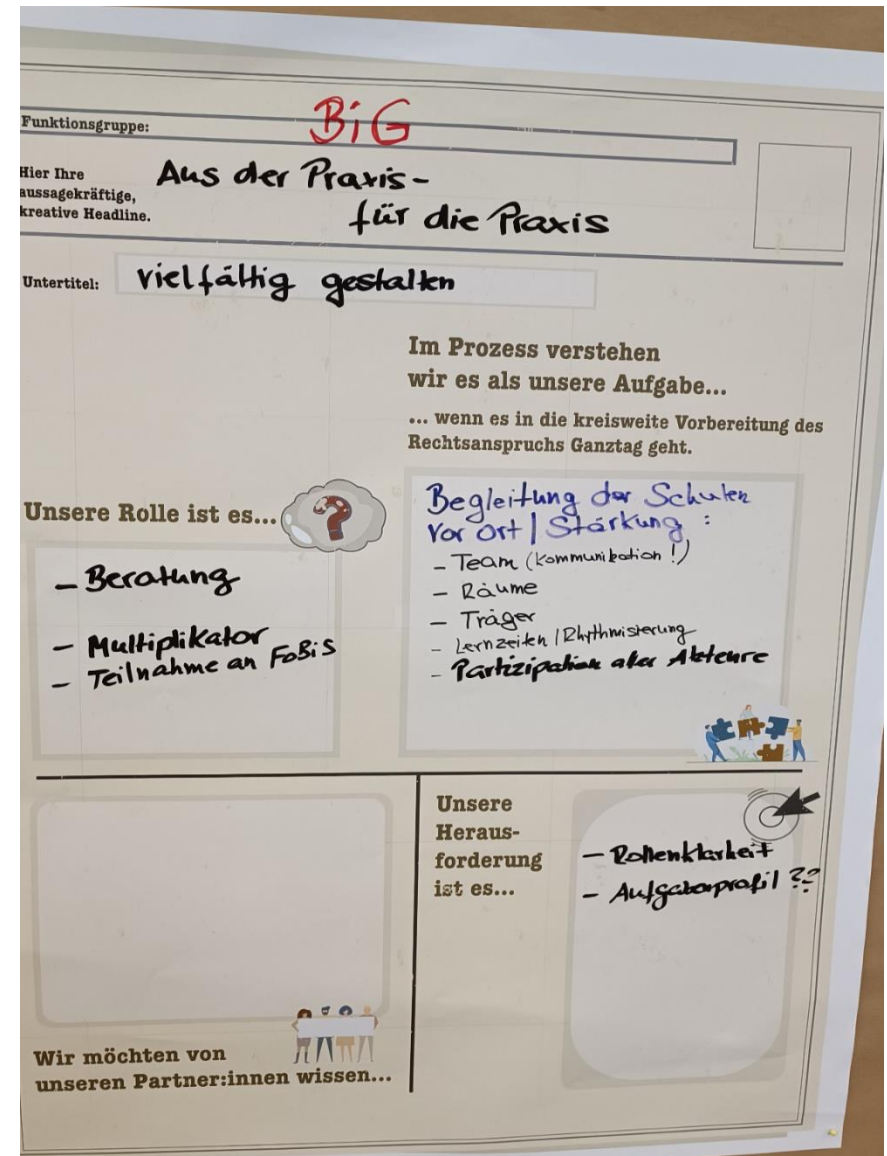 Funktionsgruppe:
BiG
Hier Ihre
aussagekräftige,
kreative Headline.
Aus der Praxis-
für die Praxis
Untertitel:
vielfältig gestalten
Im Prozess verstehen
wir es als unsere Aufgabe...
... wenn es in die kreisweite Vorbereitung des
Rechtsanspruchs Ganztag geht.
Unsere Rolle ist es...
?
- Beratung
- Multiplikator
- Teilnahme an FoBiS
Begleitung der Schulen
Vor Ort | Stärkung :
- Team (Kommunikation !)
- Räume
- Träger
- Lernzeiten / Rhythmisierung
- Partizipation aller Akteure
Unsere
Heraus-
forderung
ist es...
- Rollenklarheit
- Aufgabenprofil ??
Wir möchten von
unseren Partner:innen wissen...